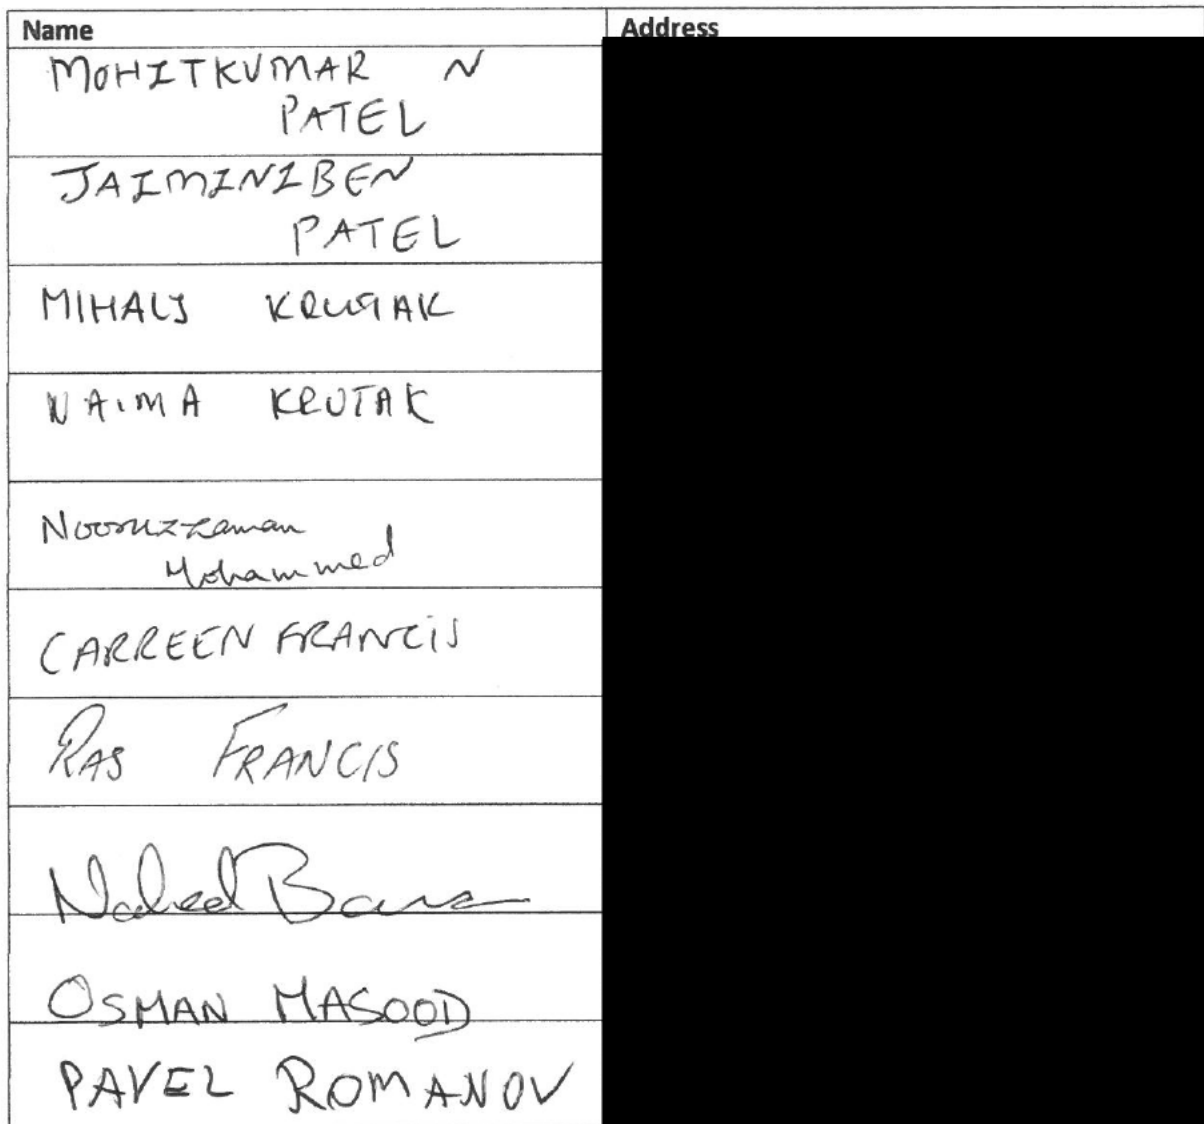 Name Address
MOHITKUMAR N
PATEL
JAIMINIBEN
PATEL
MIHALY KRUTAK
NAIMA KRUTAK
Nooruzzaman
Mohammed
CARREEN FRANCIS
RAS FRANCIS
Naheed
OSMAN MASOOD
PAVEL ROMANOV